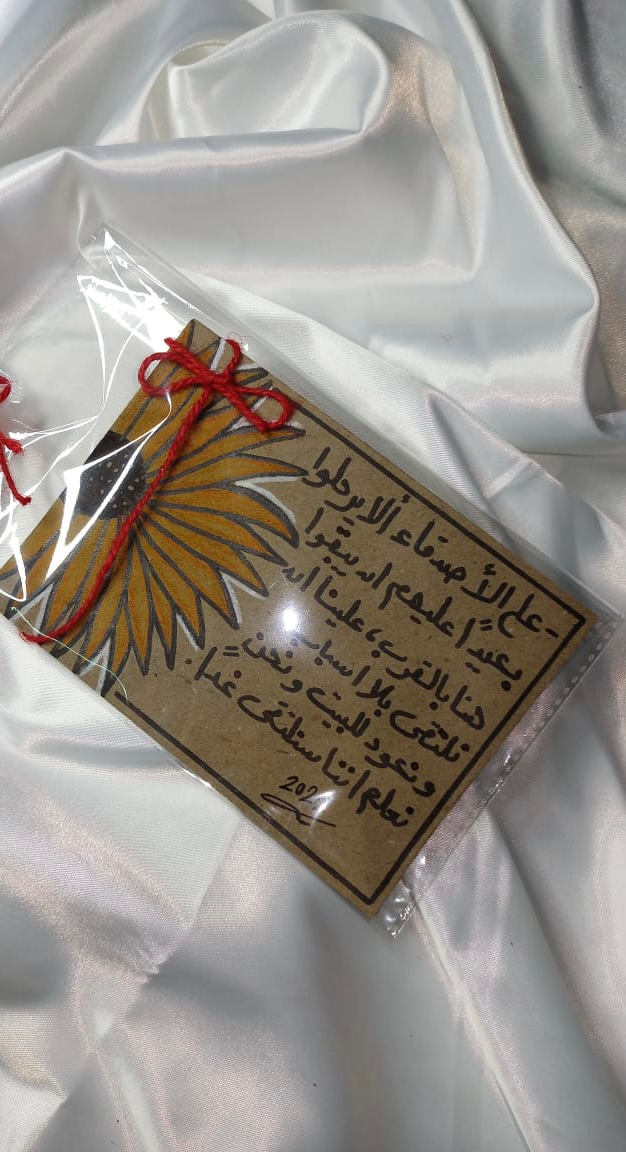 - على الأصدقاء ألا يرحلوا
بعيدًا عليهم ان يبقوا
هنا بالقرب، علينا ان
نلتقي بلا اسباب
ونعود للبيت ونحن
نعلم اننا سنلتقي غدًا.